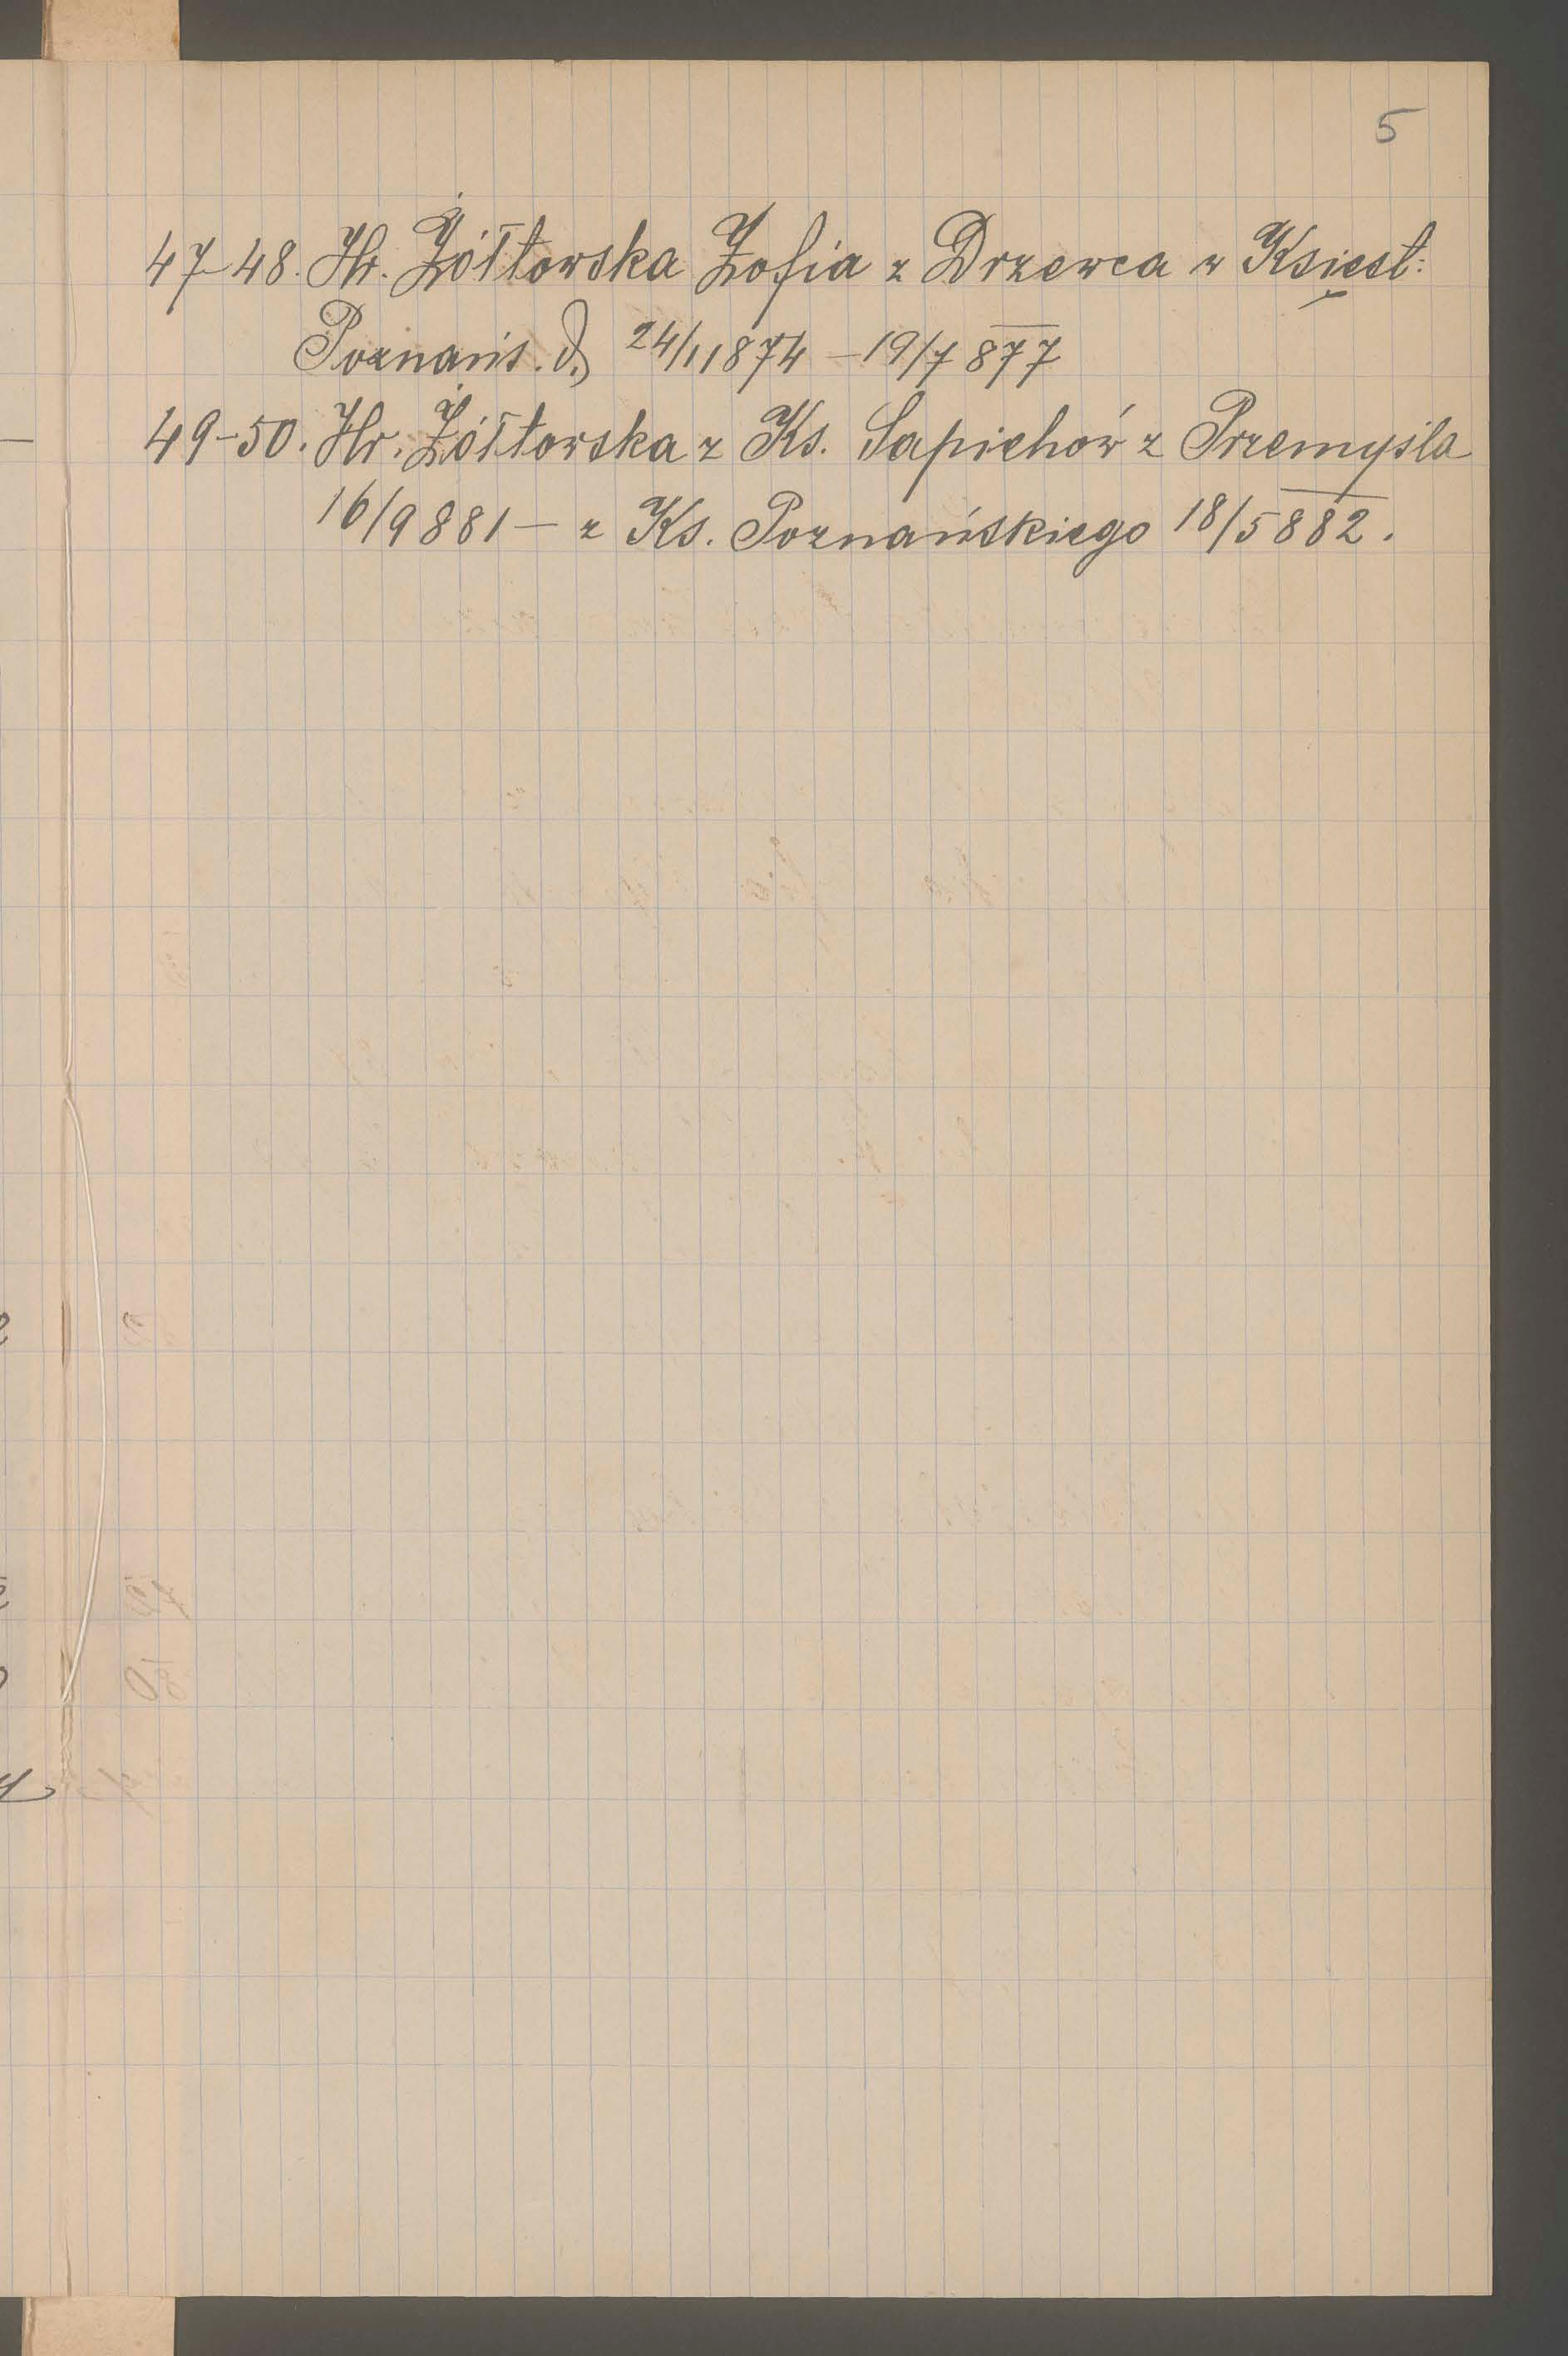 5
47-48. Hr. Żółtowska Zofia z Drzewca w Księst:
Poznańs. d. 24/11 874 – 19/7 877
49-50. Hr. Żółtowska z Ks. Sapiehów z Przemyśla
16/9 881 – z Ks. Poznańskiego 18/5 882.